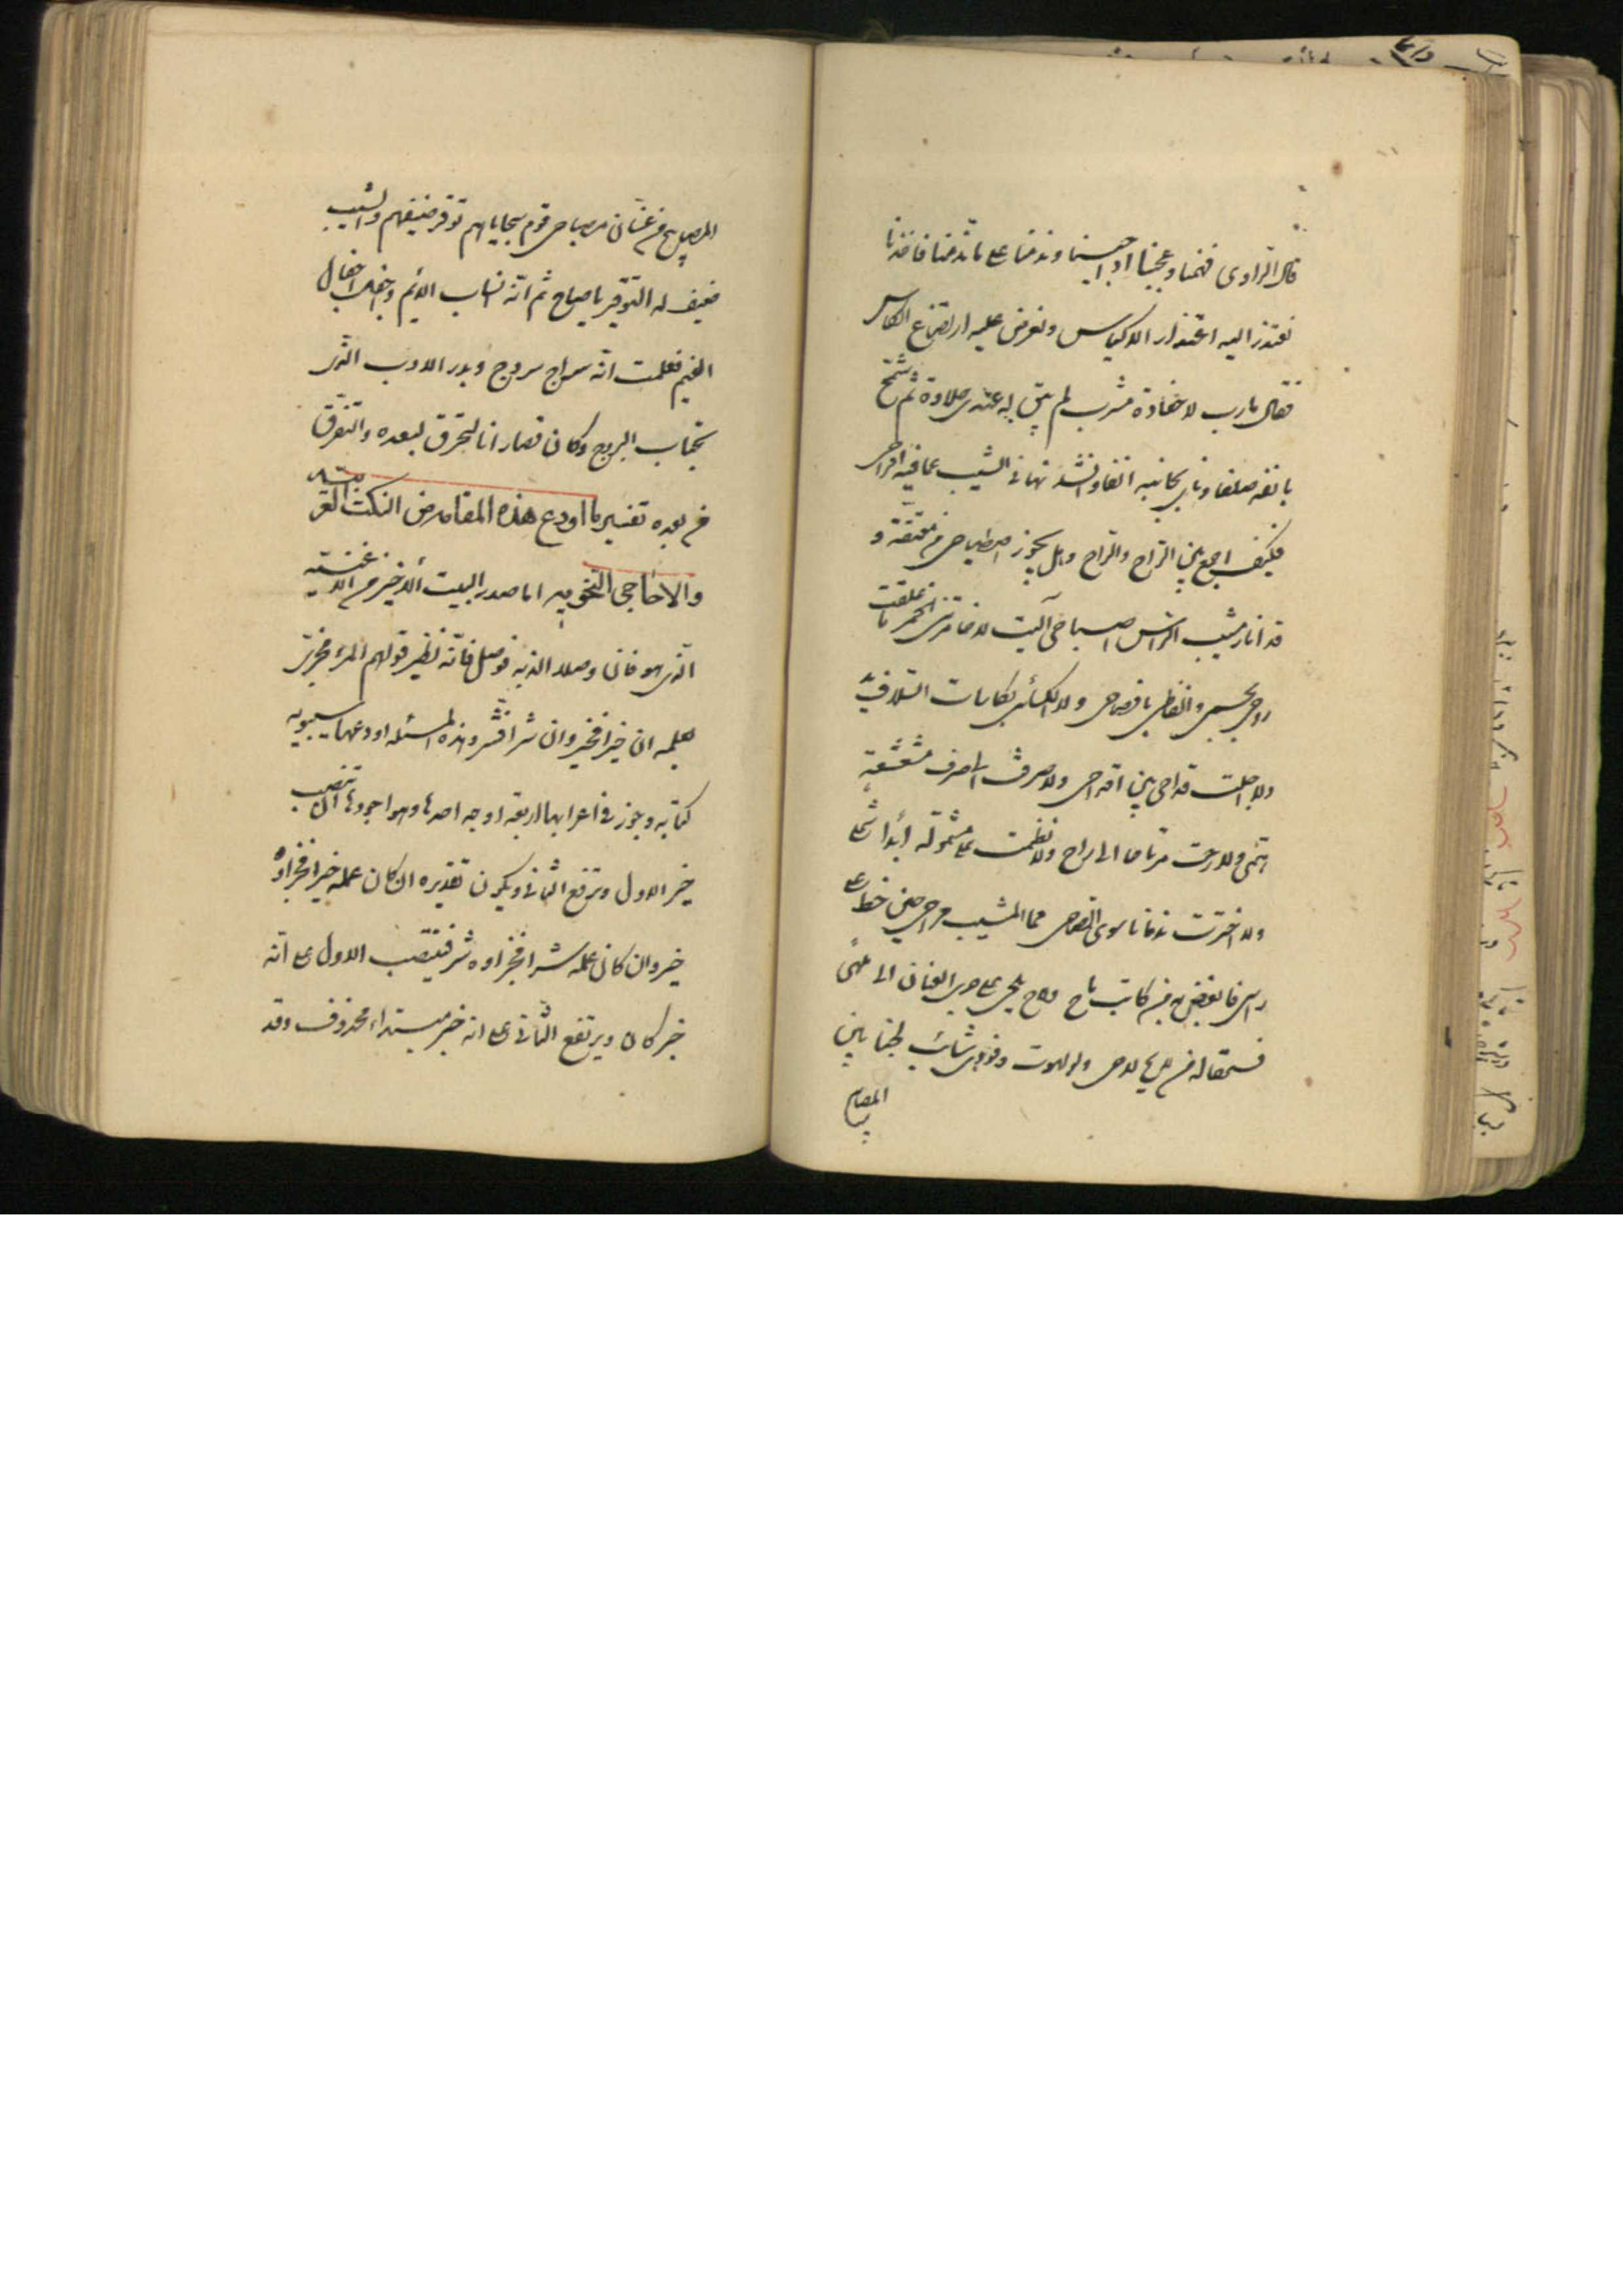 قال الراوى ففهمنا وعجبنا اذ اجبنا وندمنا على ما ند منا فاخذنا
نعتذر اليه اعتذار الاكياس ونعرض عليه ارتضاع الكاس
فقال مارب لا حفاوة مشرب لم يبق له عندى حلاوة ثم شمخ
بانفه صلفا وناى بجانبه انفا وانشد نهانى الشيب عما فيه افراحى
فكيف اجمع بين الراح والراح وهل يجوز اصطباحى من معتقة و
قد انار مشيب الراس اصباحى آليت لا خامرتنى الخمر ما علقت
روحى بجسمى والفاظى بافصاحى ولا بكاسات السلاف يد
ولا اجلت قداحى بين اقداحى ولا صرفت الى صرف مشعشعة
همى ولا رحت مرتاحا الى راح ولا نظمت على مشمولة أبدا شملى
ولا اخترت ندمانا سوى الصاحى محا المشيب مراحى حين خط على
راسى فابغض به من كاتب ماح ولاح يلحى على جرى العنان الى ملهى
فسحقا له من لايح لاحى ولو لهوت وفودى شائب لخبا بين
المصابيح
المصابيح من غسان مصباحى قوم سجاياهم توقير ضيفهم والشيب
ضيف له التوقير يا صاح ثم انه انساب الايم واجفل اجفال
الغيم فعلمت انه سراج سروج وبدر الادب الذى
يجتاب البروج وكان قصارانا التحرق لبعده والتفرق
من بعده تفسير ما اودع هذه المقامة من النكت العربية
والاحاجى النحويه اما صدر البيت الاخير من الاغنية
الذى هو فان وصلا الذ به فوصل فانه نظير قولهم المرء مجزى
بعلمه ان خيرا فخير وان شرا فشر وهذه المسئلة اودعها سيبويه
كتابه وجوز فى اعرابها اربعة اوجه احدها وهو اجودها ان تنصب
خير الاول وترفع الثانى ويكون تقديره ان كان عمله خيرا فجزاؤه
خير وان كان عمله شرا فجزاوه شر فتنصب الاول على انه
خبر كان ويرتفع الثانى على انه خبر مبتداء محذوف وقد